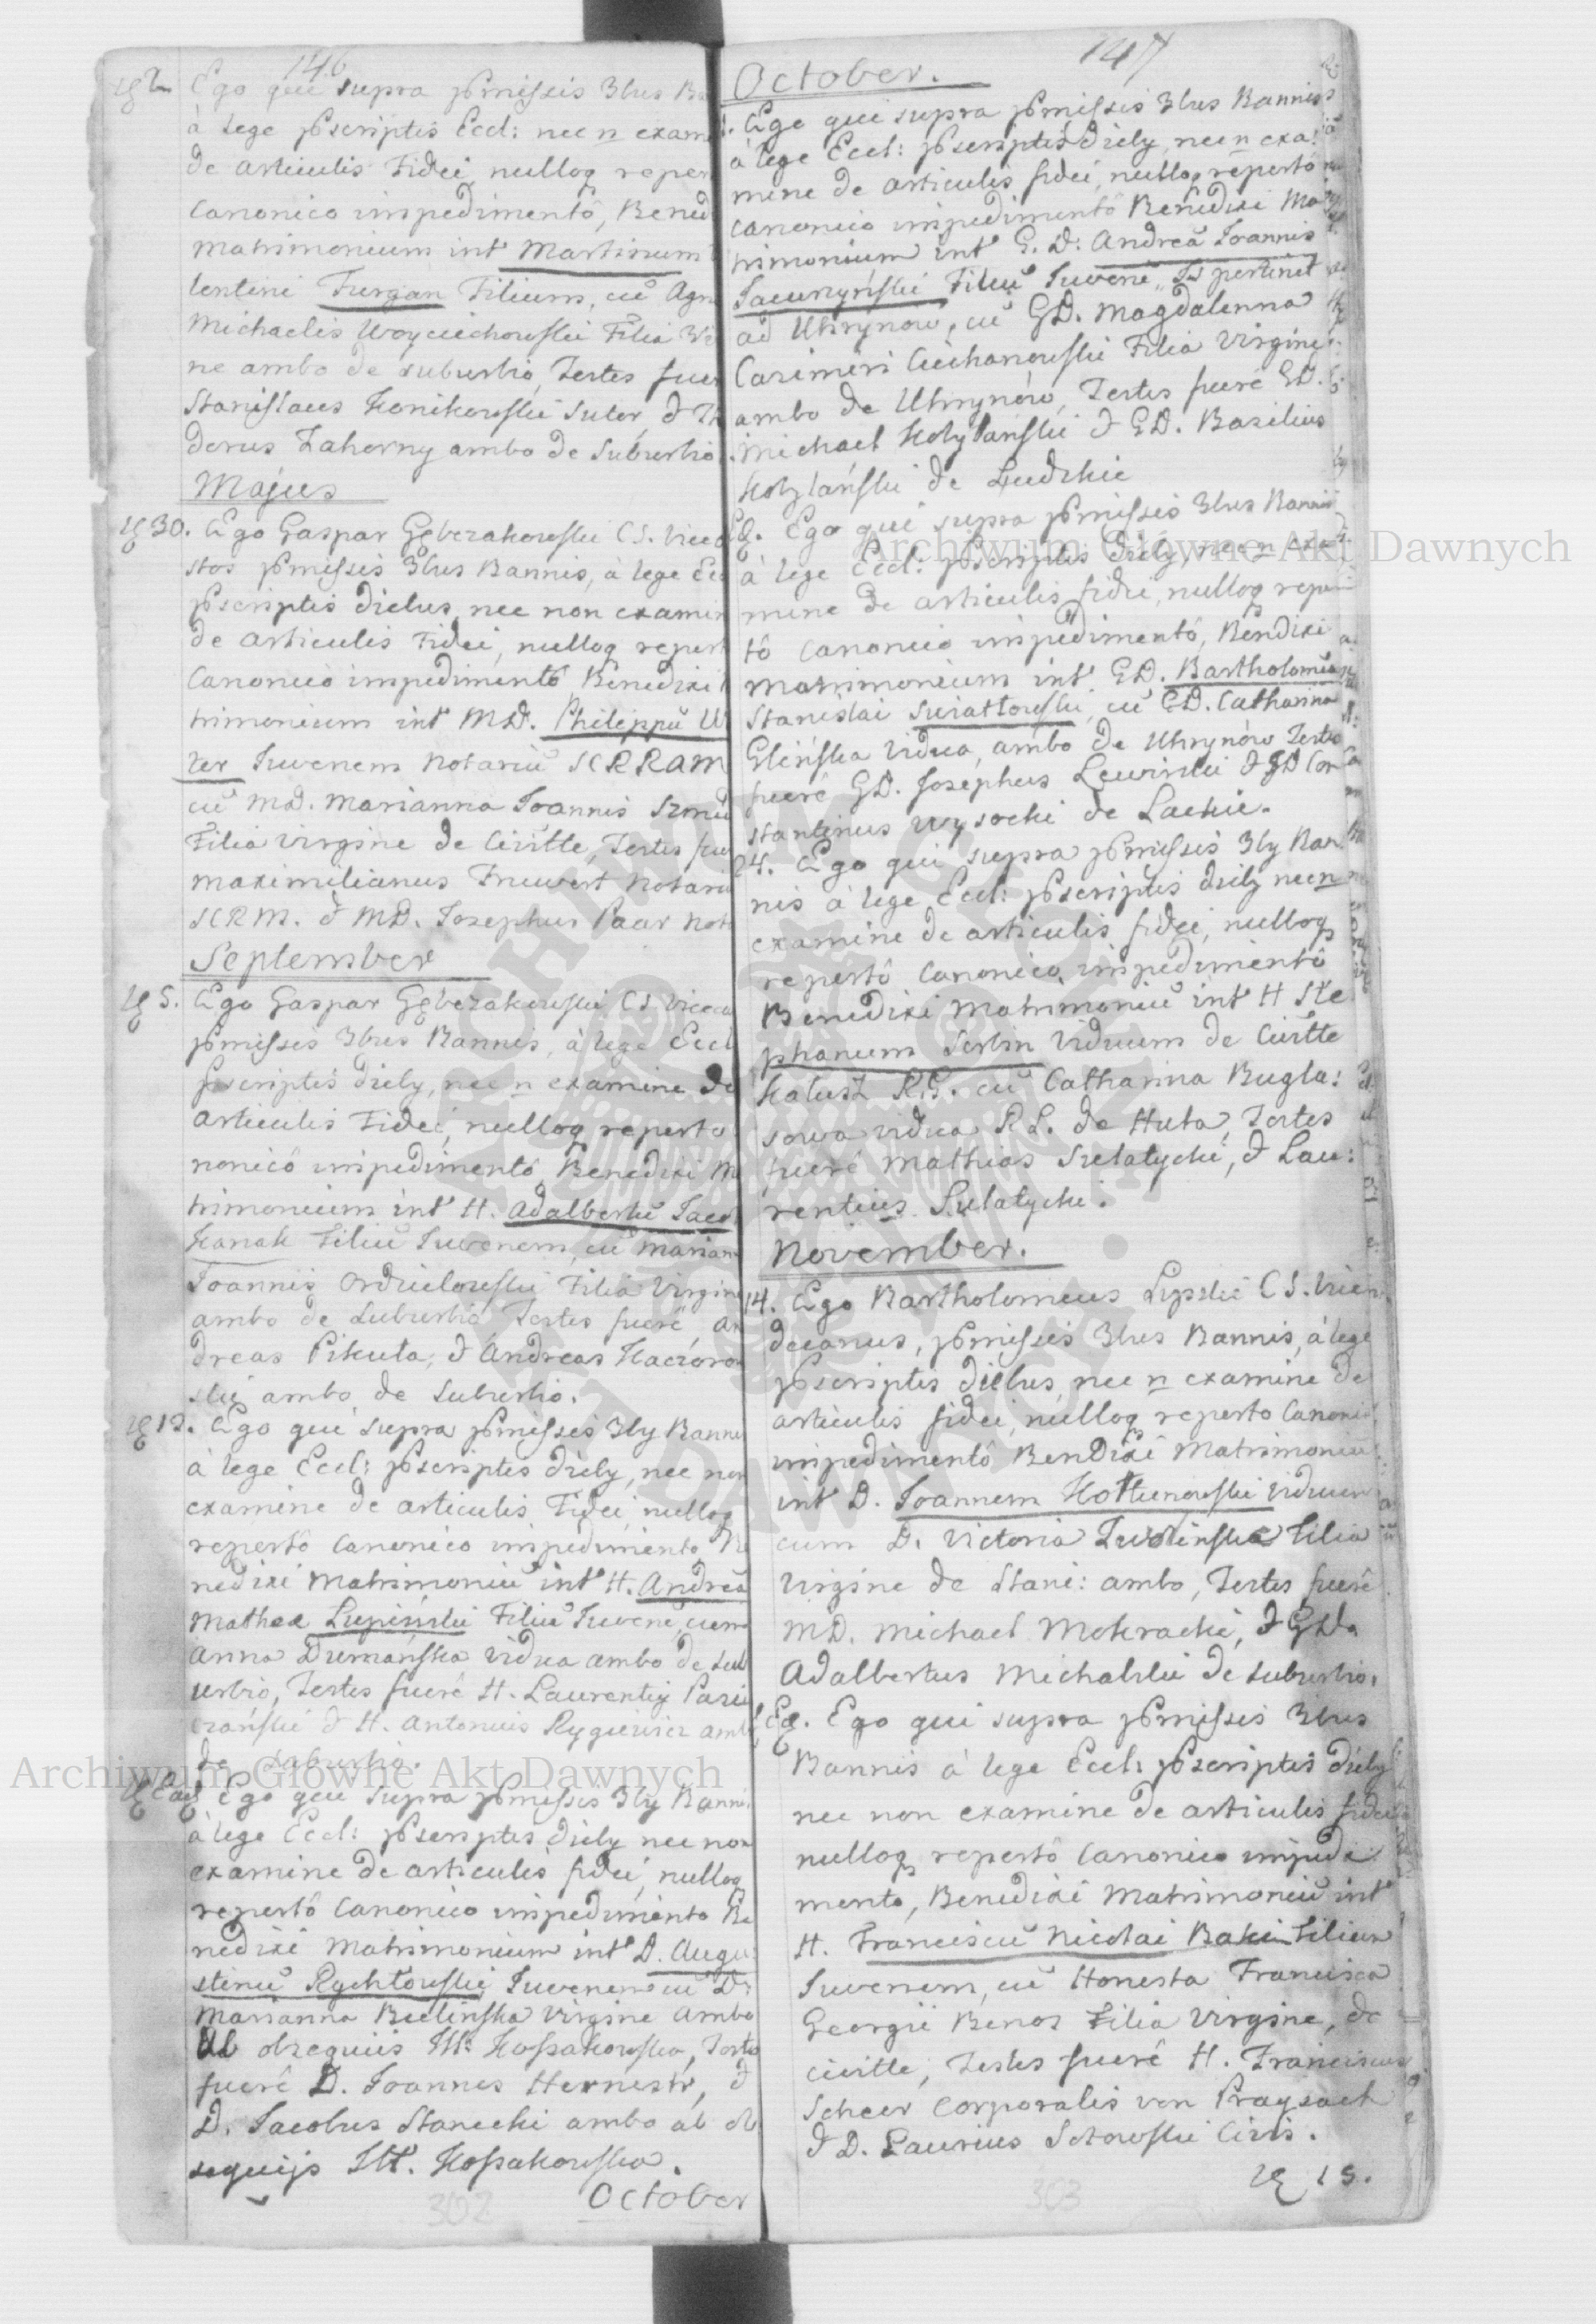 146
2.
Ego qui supra pômissis 3bus
à lege pôscriptis Eccl: nec n exam
de articulis Fidei nulloq reper
Canonico impedimentô, Bened
Matrimonium int Martinum
lentini Furgan Filium, cũ Agn
Michaelis Woyciechowski Filia Vi
ne ambo de suburbio, Testes fuer
Stanislaus Konikowski Sutor, &
dorus Zahorny ambo de Suburbio
Majus
30. Ego Gaspar Gębczakowski CS. Vice
pômissis 3bus Bannis, à lege Ec
pôscriptis diebus, nec non examin
de articulis Fidei, nulloq repert
Canonicô impedimentô Benedixi
trimonium int MD. Philippũ W
Juvenem Notariũ SCRRAM
cũ MD. Marianna Joannis
Filia Virgine de Civitte, Testes fue
Maximilianus Notari
SCRM. & MD. Josephus Paar Not
September
5. Ego Gaspar Gębczakowski CS Vice
pômisses 3bus Bannis, à lege Eccl
pôscriptis dieby, nec n examine de
articulis Fidei, nulloq reperto
nonicô impedimentô, Benedixi Ma
trimonium int H. Adalbertũ Jaco
Kanak Filiũ Juvenem, cũ Marian
Joannis Filia Virgine
ambo de Suburbio Testes fuerê, An
dreas Pikuta, & Andreas
ski ambo de Suburbio.
13. Ego qui supra pômisses 3by Banni
à lege Eccl: pôscriptis dieby, nec non
examine de articulis Fidei, nulloq
repertô Canonico impedimento Be
nedixi Matrimoniũ int H. Andreã
Mathea Lupinski Filiũ Juvenẽ, cum
Anna Dumańska Vidua ambo de sub
urbio, Testes fuerê H. Laurentiy
& H. Antonius Rygiewicz ambo
de Suburbio.
Ego qui supra pômisses 3by Banni
à lege Eccl: pôscriptis dieby nec non
examine de articulis fidei, nulloq
repertô Canonico impedimento Be
nedixi Matrimonium int D. Augu
stinũ Rychtowski, Juvenem cũ D:
Marianna Bielinska Virgine ambo
ab obsequiis Kossakowska, Testes
fuerê D. Joannes & 
D. Jacobus Stanecki ambo ab ob
sequijs Kossakowska.
October
302
147
October.
Ego qui supra pômissis 3bus Bannis
à lege Eccl: pôscriptis dieby, nec n exa:
mine de articulis fidei, nulloq repertô
canonico impedimentô Benedixi Ma
trimonium int G. D: Andreã Joannis
Filiũ Juvenẽ, pertinet
ad Uhrynow, cũ GD. Magdalenna
Casimiri Ciechanowski Filia Virgine
ambo de Uhrynów, Testes fuerê GD.
Michael Hołylański & GD. Basilius
Hołylański de
Ego qui supra pômissis 3bus Bannis
à lege Eccl: pôscriptis dieby, nec n exa
mine de articulis fidei, nulloq reper
tô Canonico impedimentô, Bendixi
Matrimonium int GD. Bartholomeũ
Stanislai Swiatłowski, cũ GD. Catharina
Glińska Vidua, ambo de Uhrynów Testes
fuerê GD. Josephus Lewiński & GD Con
stantinus Wysocki de Lackie.
24. Ego qui supra pômissis 3by Ban
nis à lege Eccl: pôscriptis dieby nec n
examine de articulis fidei, nulloq
repertô Canonico impedimentô
Benedixi Matrimoniũ int H Ste
phanum Serbin Viduum de Civitte
Kałusz R.G. cũ Catharina Bugla:
sowa vidua R L. de Huta, Testes
fuerê Mathias Sulatycki, & Lau:
rentius Sulatycki.
November.
14. Ego Bartholomeus Lipski CS. Vice
decanus, pômissis 3bus Bannis, à lege
pôscriptis diebus, nec n examine de
articulis fidei, nulloq reperto Canonic
impedimentô Bendixi Matrimoniũ
int D. Joannem Viduum
cum D. Victoria Filia
Virgine de Stani: ambo, Testes fuerê
MD. Michael Mokracki, & GD.
Adalbertus Michalski de suburbio.
Ego qui supra pômissis 3bus
Bannis à lege Eccl: pôscriptis dieby
nec non examine de articulis fidei
nulloq repertô Canonico impedi
mento, Benedixi Matrimoniũ int
H. Franciscũ Nicolai Baki Filium
Juvenem, cũ Honesta Francisca
Georgii Benos Filia Virgine, de
Civitte, Testes fuerê H. Franciscus
Scheer Corporalis von Praysach
& D. Laurius Sotowski Civis.
15.
303
Archiwum Główne Akt Dawnych
Archiwum Główne Akt Dawnych